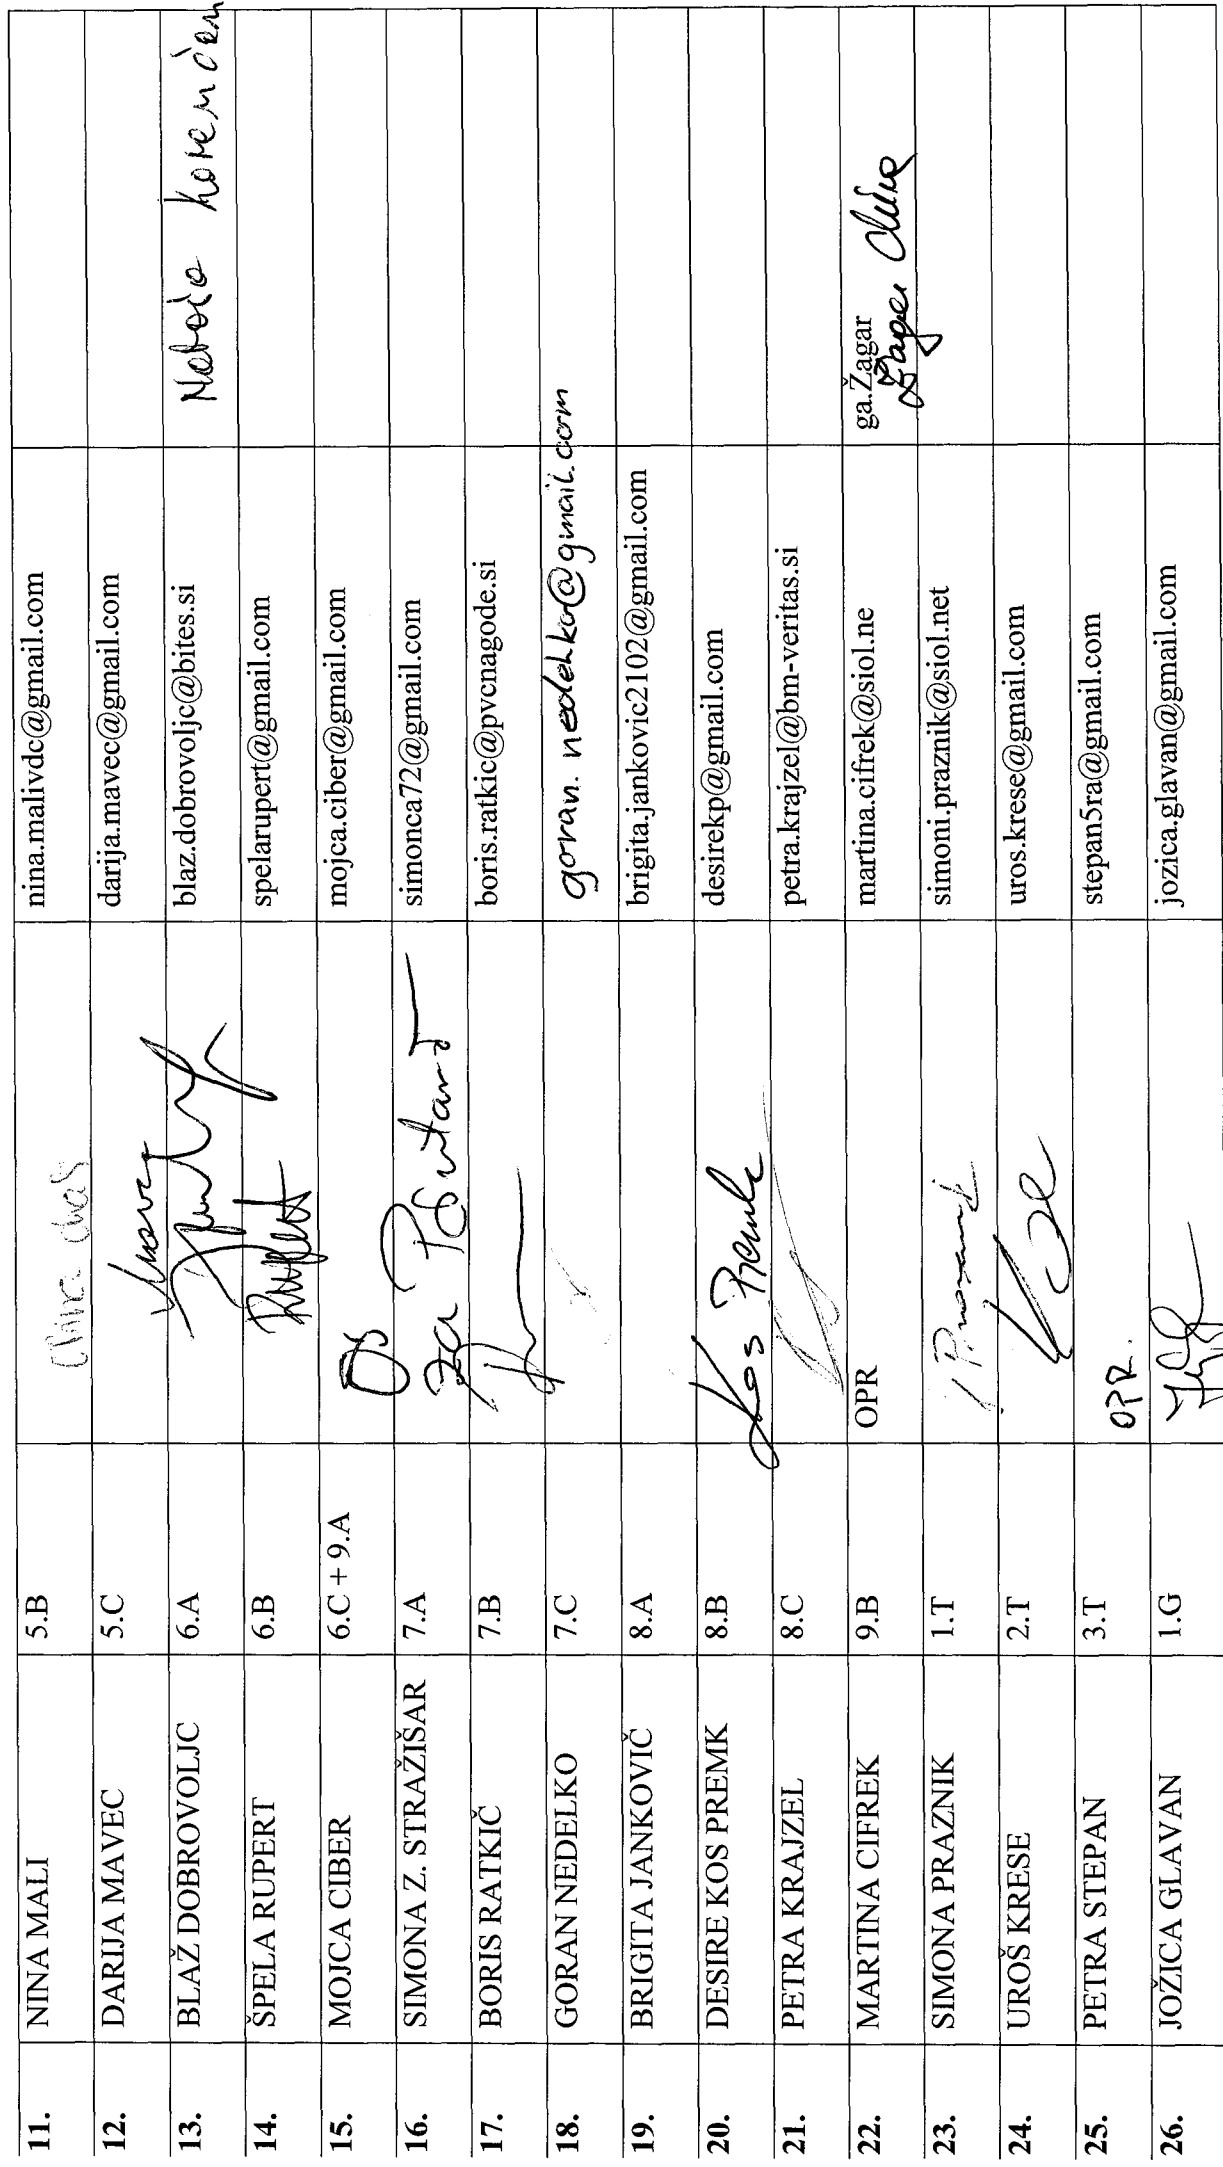 11. NINA MALI 5.B nina.malivdc@gmail.com
12. DARIJA MAVEC 5.C Mavec darija.mavec@gmail.com
13. BLAŽ DOBROVOLJC 6.A blaz.dobrovoljc@bites.si Nataša Korenčan
14. ŠPELA RUPERT 6.B Rupert spelarupert@gmail.com
15. MOJCA CIBER 6.C + 9.A mojca.ciber@gmail.com
16. SIMONA Z. STRAŽIŠAR 7.A za simonca72@gmail.com
17. BORIS RATKIČ 7.B boris.ratkic@pvcnagode.si
18. GORAN NEDELKO 7.C goran.nedelko@gmail.com
19. BRIGITA JANKOVIČ 8.A brigita.jankovic2102@gmail.com
20. DESIRE KOS PREMK 8.B Kos Premk desirekp@gmail.com
21. PETRA KRAJZEL 8.C petra.krajzel@bm-veritas.si
22. MARTINA CIFREK 9.B OPR martina.cifrek@siol.ne ga.Žagar
Žagar
23. SIMONA PRAZNIK 1.T simoni.praznik@siol.net
24. UROŠ KRESE 2.T uros.krese@gmail.com
25. PETRA STEPAN 3.T OPR. stepan5ra@gmail.com
26. JOŽICA GLAVAN 1.G jozica.glavan@gmail.com